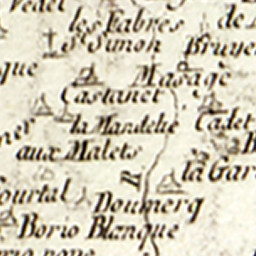 les Fabres
de
St Simon
Bruye
que
Masage
Castanet
la Mandelie
Cadet
aux Malets
la Gar
ourtal
Doumerg
Borio Blanque